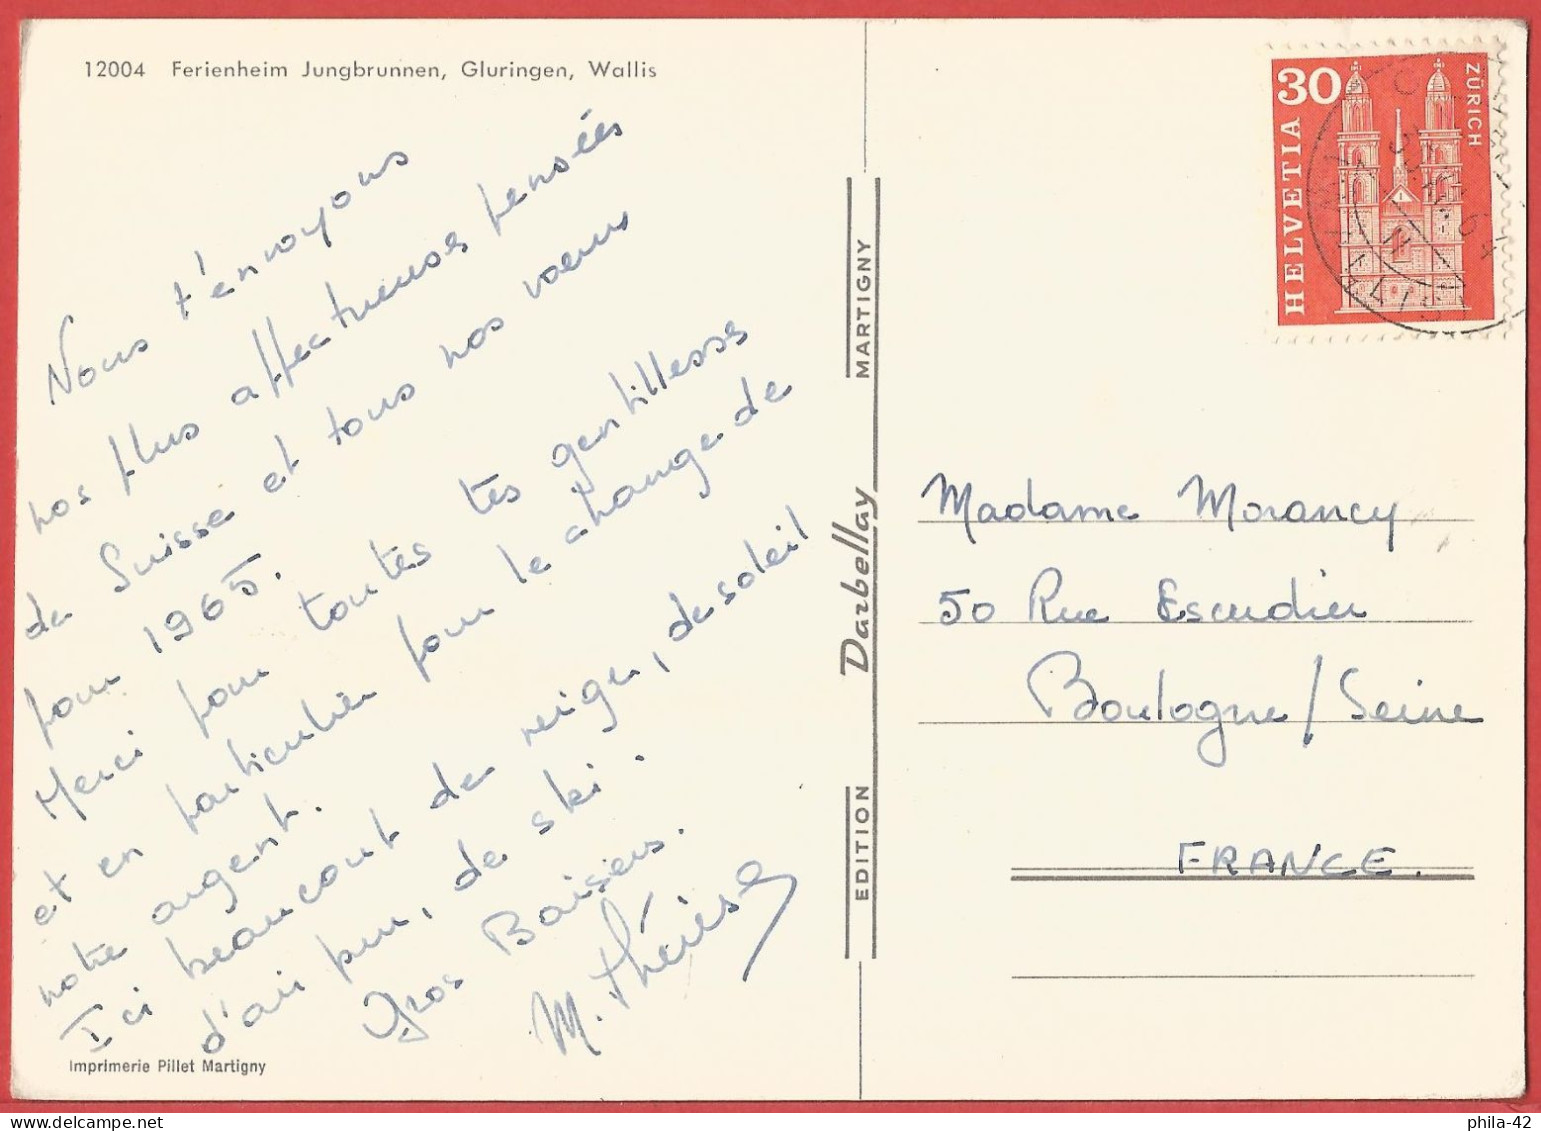 12004 Ferienheim Jungbrunnen, Gluringen, Wallis
Nous t'envoyons
nos plus affectueuses pensées
de Suisse et tous nos vœux
pour 1965.
Merci pour toutes tes gentillesses
et en particulier pour le change de
notre argent.
Ici beaucoup de neige, de soleil
d'air pur, de ski.
Gros Baisers.
M. Thérèse
Imprimerie Pillet Martigny
EDITION Darbellay MARTIGNY
30
HELVETIA
ZÜRICH
Madame Morancy
50 Rue Escudier
Boulogne/Seine
FRANCE.
phila-42